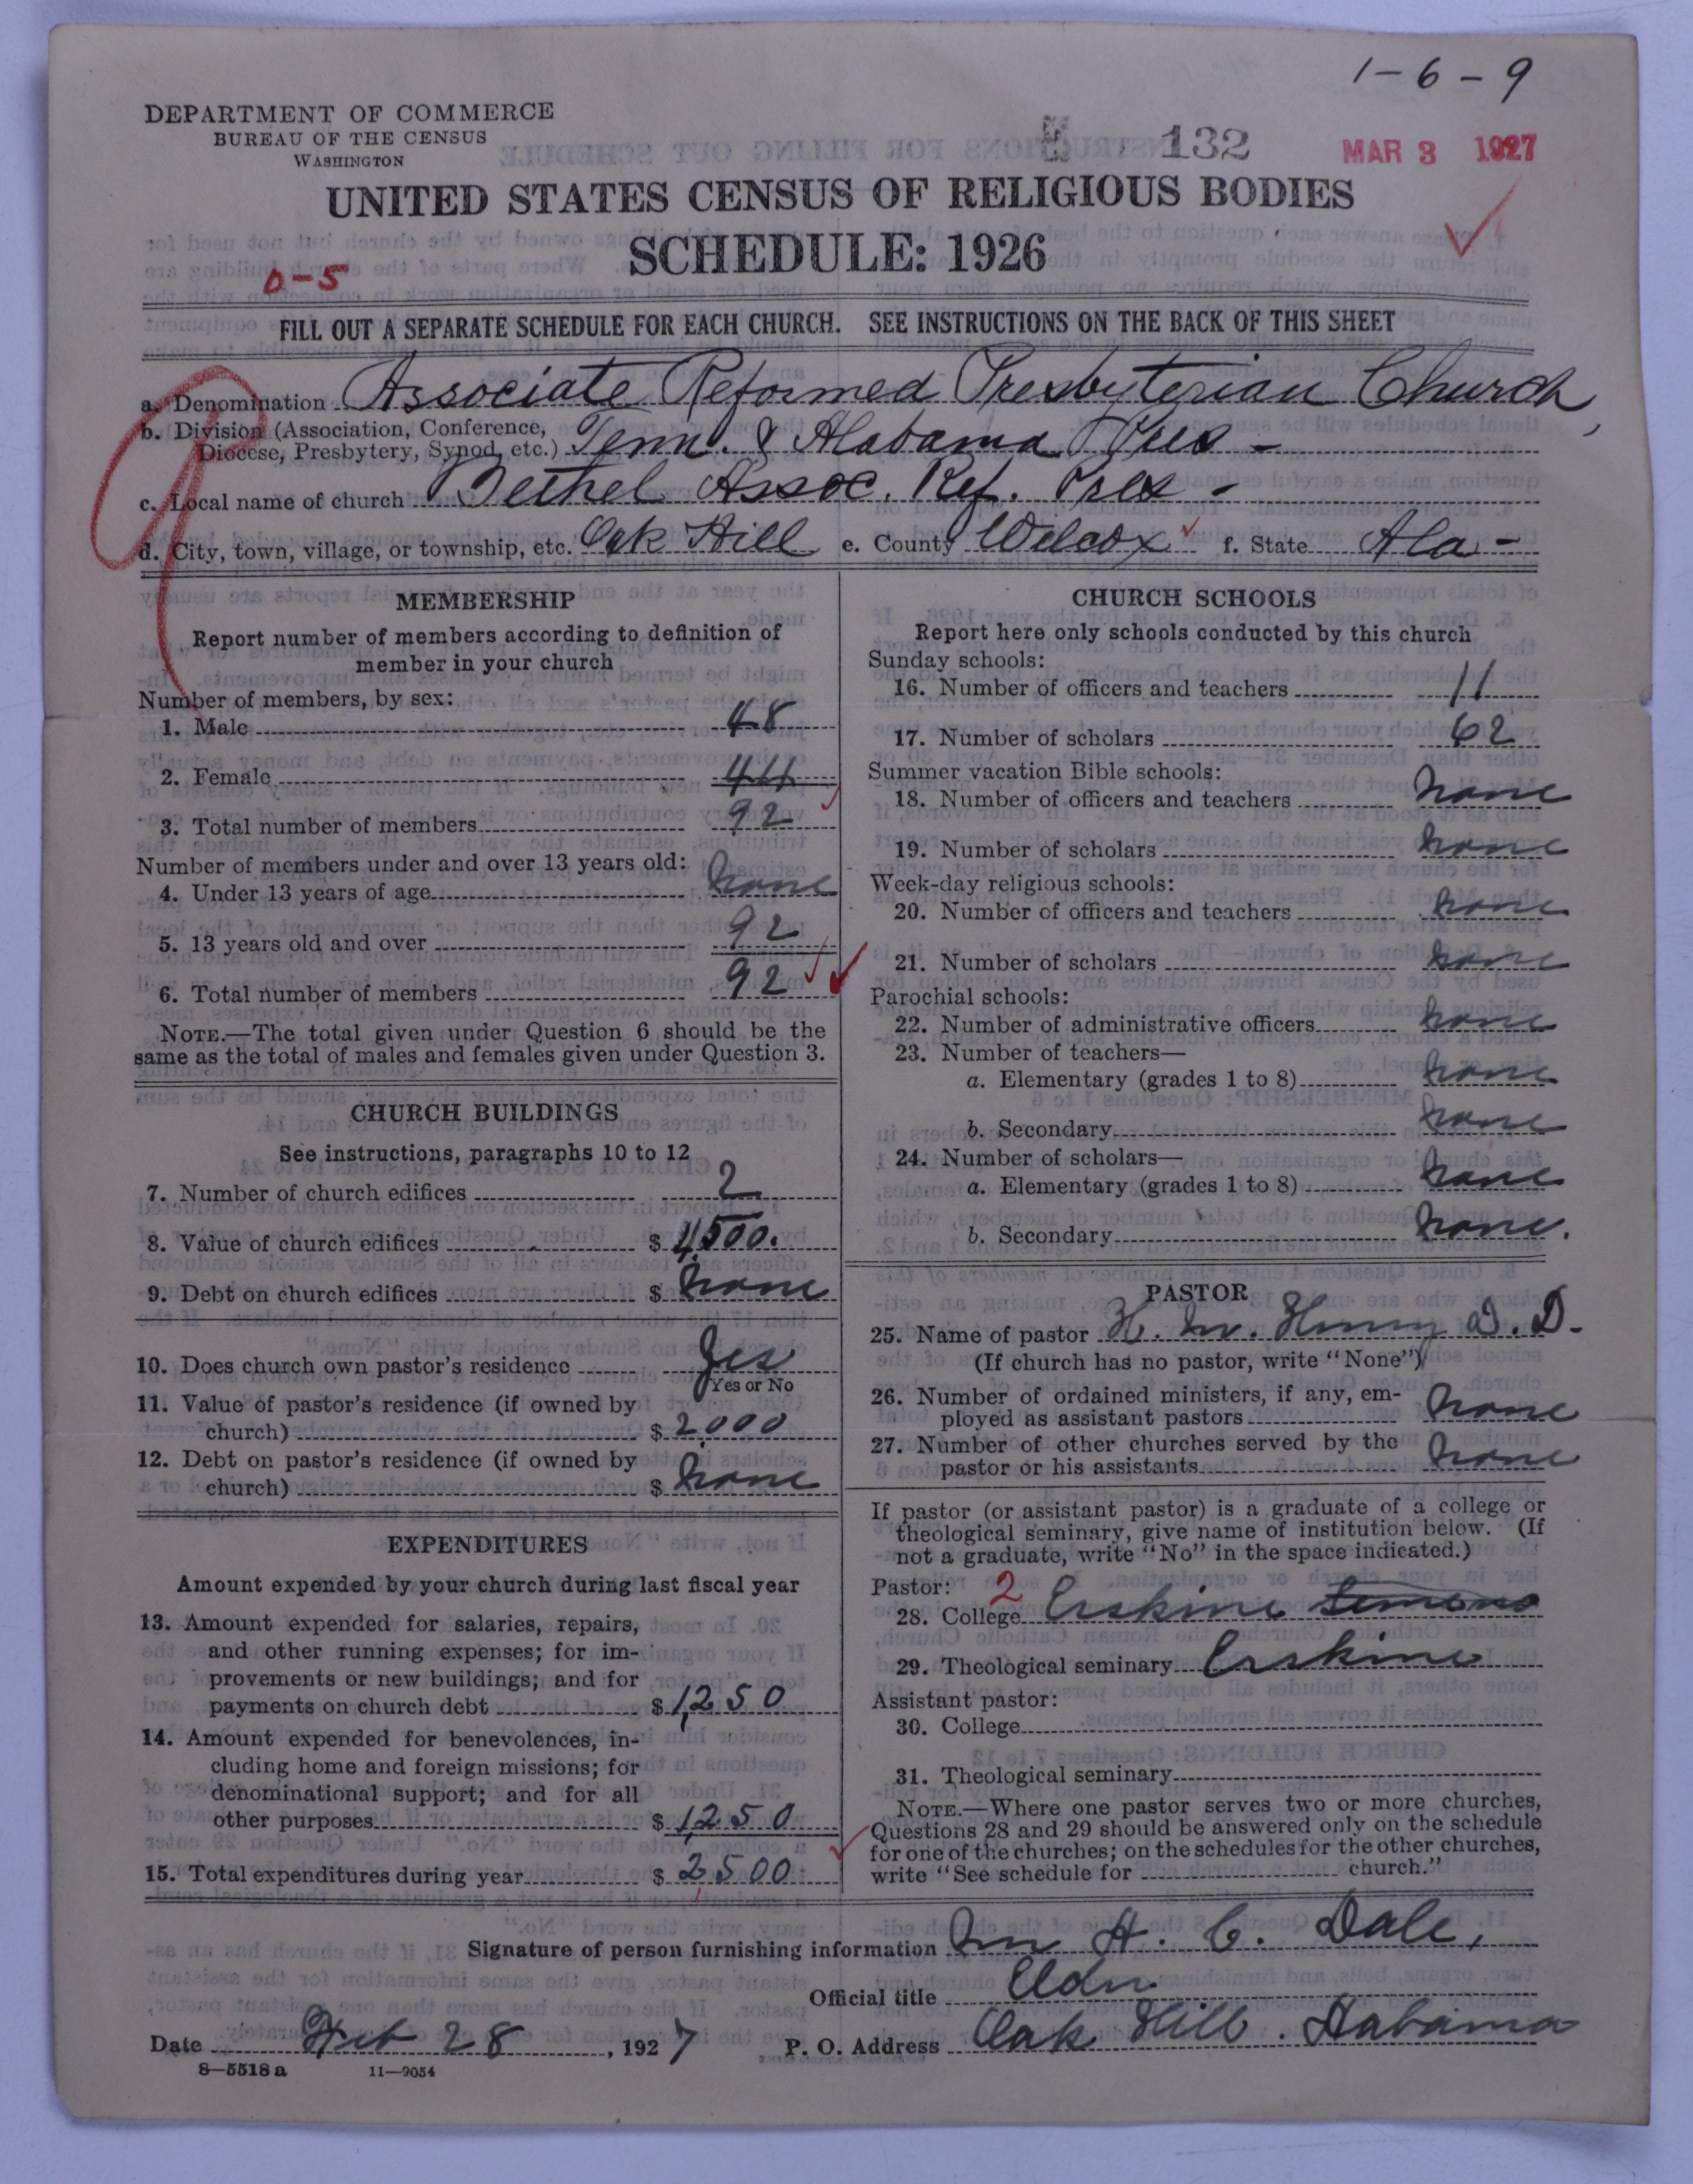 1-6-9
DEPARTMENT OF COMMERCE
BUREAU OF THE CENSUS
WASHINGTON
132
MAR 3 1927
UNITED STATES CENSUS OF RELIGIOUS BODIES
SCHEDULE: 1926
0-5
FILL OUT A SEPARATE SCHEDULE FOR EACH CHURCH. SEE INSTRUCTIONS ON THE BACK OF THIS SHEET
a. Denomination Associate Reformed Presbyterian Church,
b. Division (Association, Conference,
Diocese, Presbytery, Synod, etc.) Tenn. & Alabama Pres -
c. Local name of church Bethel Assoc. Ref. Pres -
d. City, town, village, or township, etc. Oak Hill e. County Wilcox f. State Ala -
MEMBERSHIP
Report number of members according to definition of
member in your church
Number of members, by sex:
1. Male 48
2. Female 44
3. Total number of members 92
Number of members under and over 13 years old:
4. Under 13 years of age none
5. 13 years old and over 92
6. Total number of members 92
NOTE.—The total given under Question 6 should be the
same as the total of males and females given under Question 3.
CHURCH BUILDINGS
See instructions, paragraphs 10 to 12
7. Number of church edifices 2
8. Value of church edifices $ 4,500.
9. Debt on church edifices $ none
10. Does church own pastor's residence Yes
Yes or No
11. Value of pastor's residence (if owned by
church) $ 2,000
12. Debt on pastor's residence (if owned by
church) $ none
EXPENDITURES
Amount expended by your church during last fiscal year
13. Amount expended for salaries, repairs,
and other running expenses; for im-
provements or new buildings; and for
payments on church debt $ 1,250
14. Amount expended for benevolences, in-
cluding home and foreign missions; for
denominational support; and for all
other purposes $ 1,250
15. Total expenditures during year $ 2,500
CHURCH SCHOOLS
Report here only schools conducted by this church
Sunday schools:
16. Number of officers and teachers 11
17. Number of scholars 62
Summer vacation Bible schools:
18. Number of officers and teachers none
19. Number of scholars none
Week-day religious schools:
20. Number of officers and teachers none
21. Number of scholars none
Parochial schools:
22. Number of administrative officers none
23. Number of teachers—
a. Elementary (grades 1 to 8) none
b. Secondary none
24. Number of scholars—
a. Elementary (grades 1 to 8) none
b. Secondary none.
PASTOR
25. Name of pastor H. M. Henry D. D.
(If church has no pastor, write "None")
26. Number of ordained ministers, if any, em-
ployed as assistant pastors none
27. Number of other churches served by the
pastor or his assistants none
If pastor (or assistant pastor) is a graduate of a college or
theological seminary, give name of institution below. (If
not a graduate, write "No" in the space indicated.)
Pastor: 2
28. College Erskine
29. Theological seminary Erskine
Assistant pastor:
30. College
31. Theological seminary
NOTE.—Where one pastor serves two or more churches,
Questions 28 and 29 should be answered only on the schedule
for one of the churches; on the schedules for the other churches,
write "See schedule for church."
Signature of person furnishing information H. C. Dale,
Official title
Date Feb 28, 1927 P. O. Address Oak Hill. Alabama
8-5518 a 11-9054